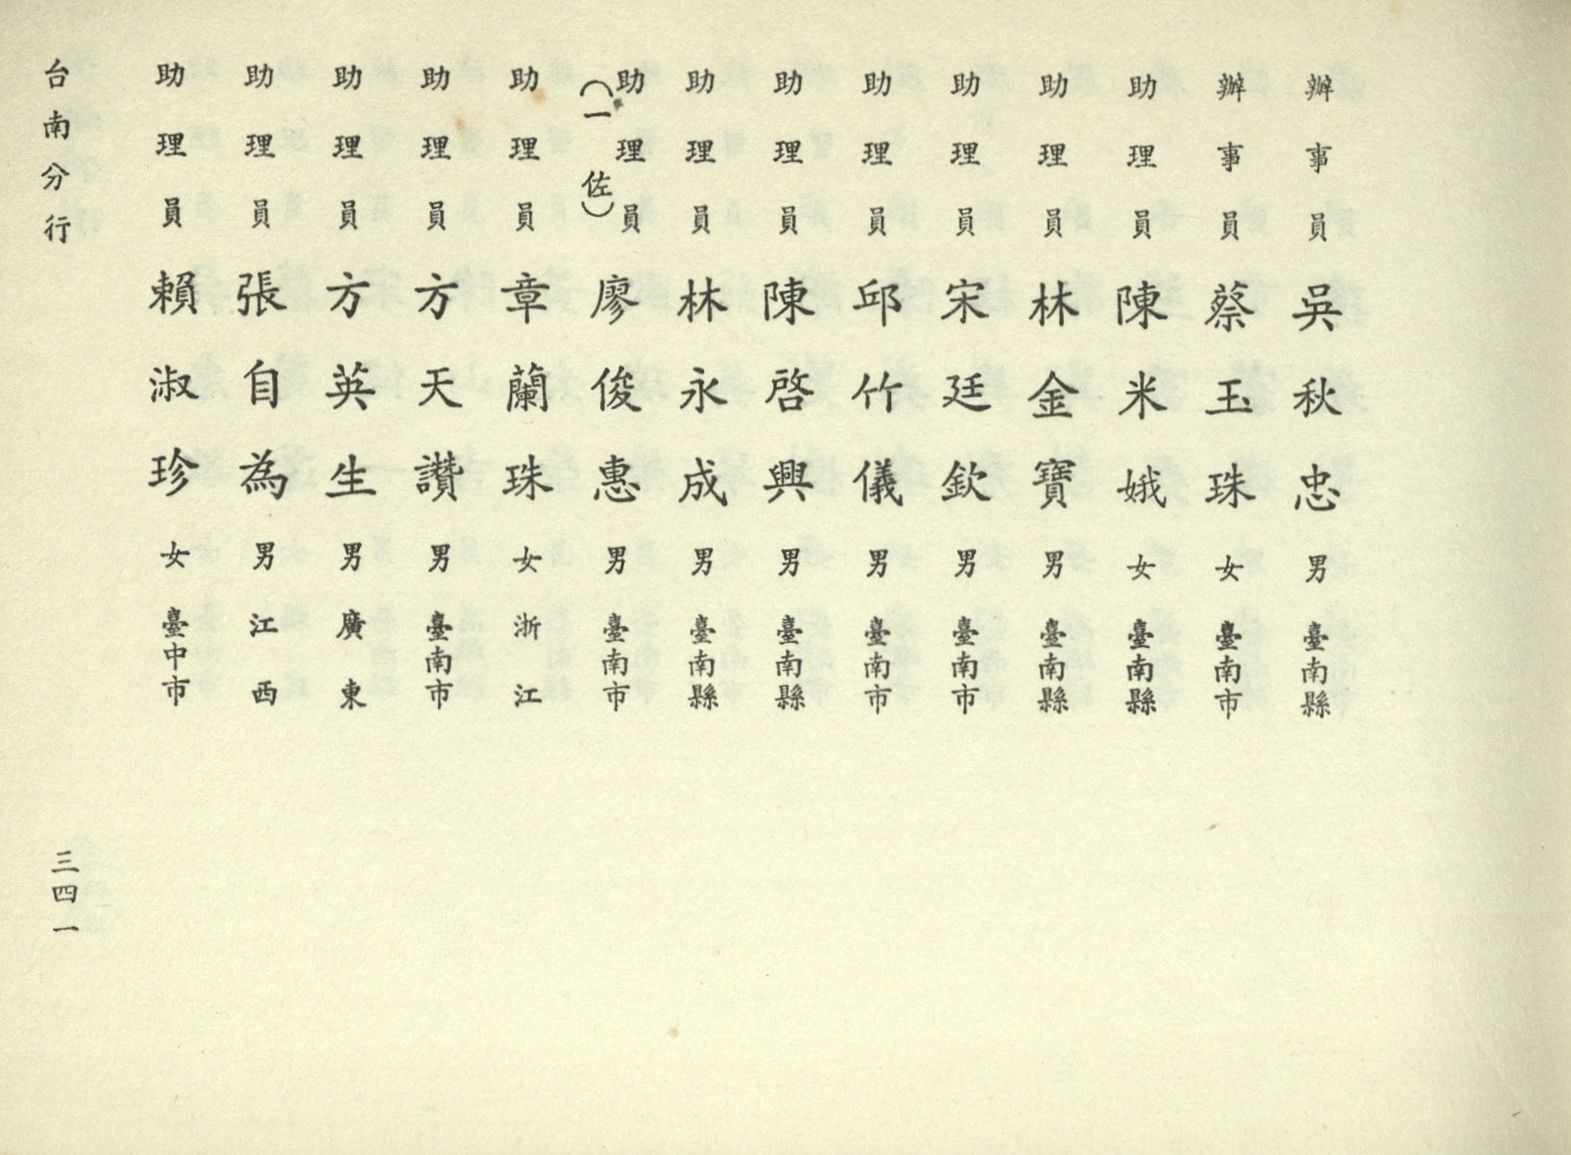 辦事員 吳秋忠 男 臺南縣
辦事員 蔡玉珠 女 臺南市
助理員 陳米娥 女 臺南縣
助理員 林金寶 男 臺南縣
助理員 宋廷欽 男 臺南市
助理員 邱竹儀 男 臺南市
助理員 陳啓興 男 臺南縣
助理員 林永成 男 臺南縣
助理員(一佐) 廖俊惠 男 臺南市
助理員 章蘭珠 女 浙江
助理員 方天讚 男 臺南市
助理員 方英生 男 廣東
助理員 張自為 男 江西
助理員 賴淑珍 女 臺中市
台南分行
三四一